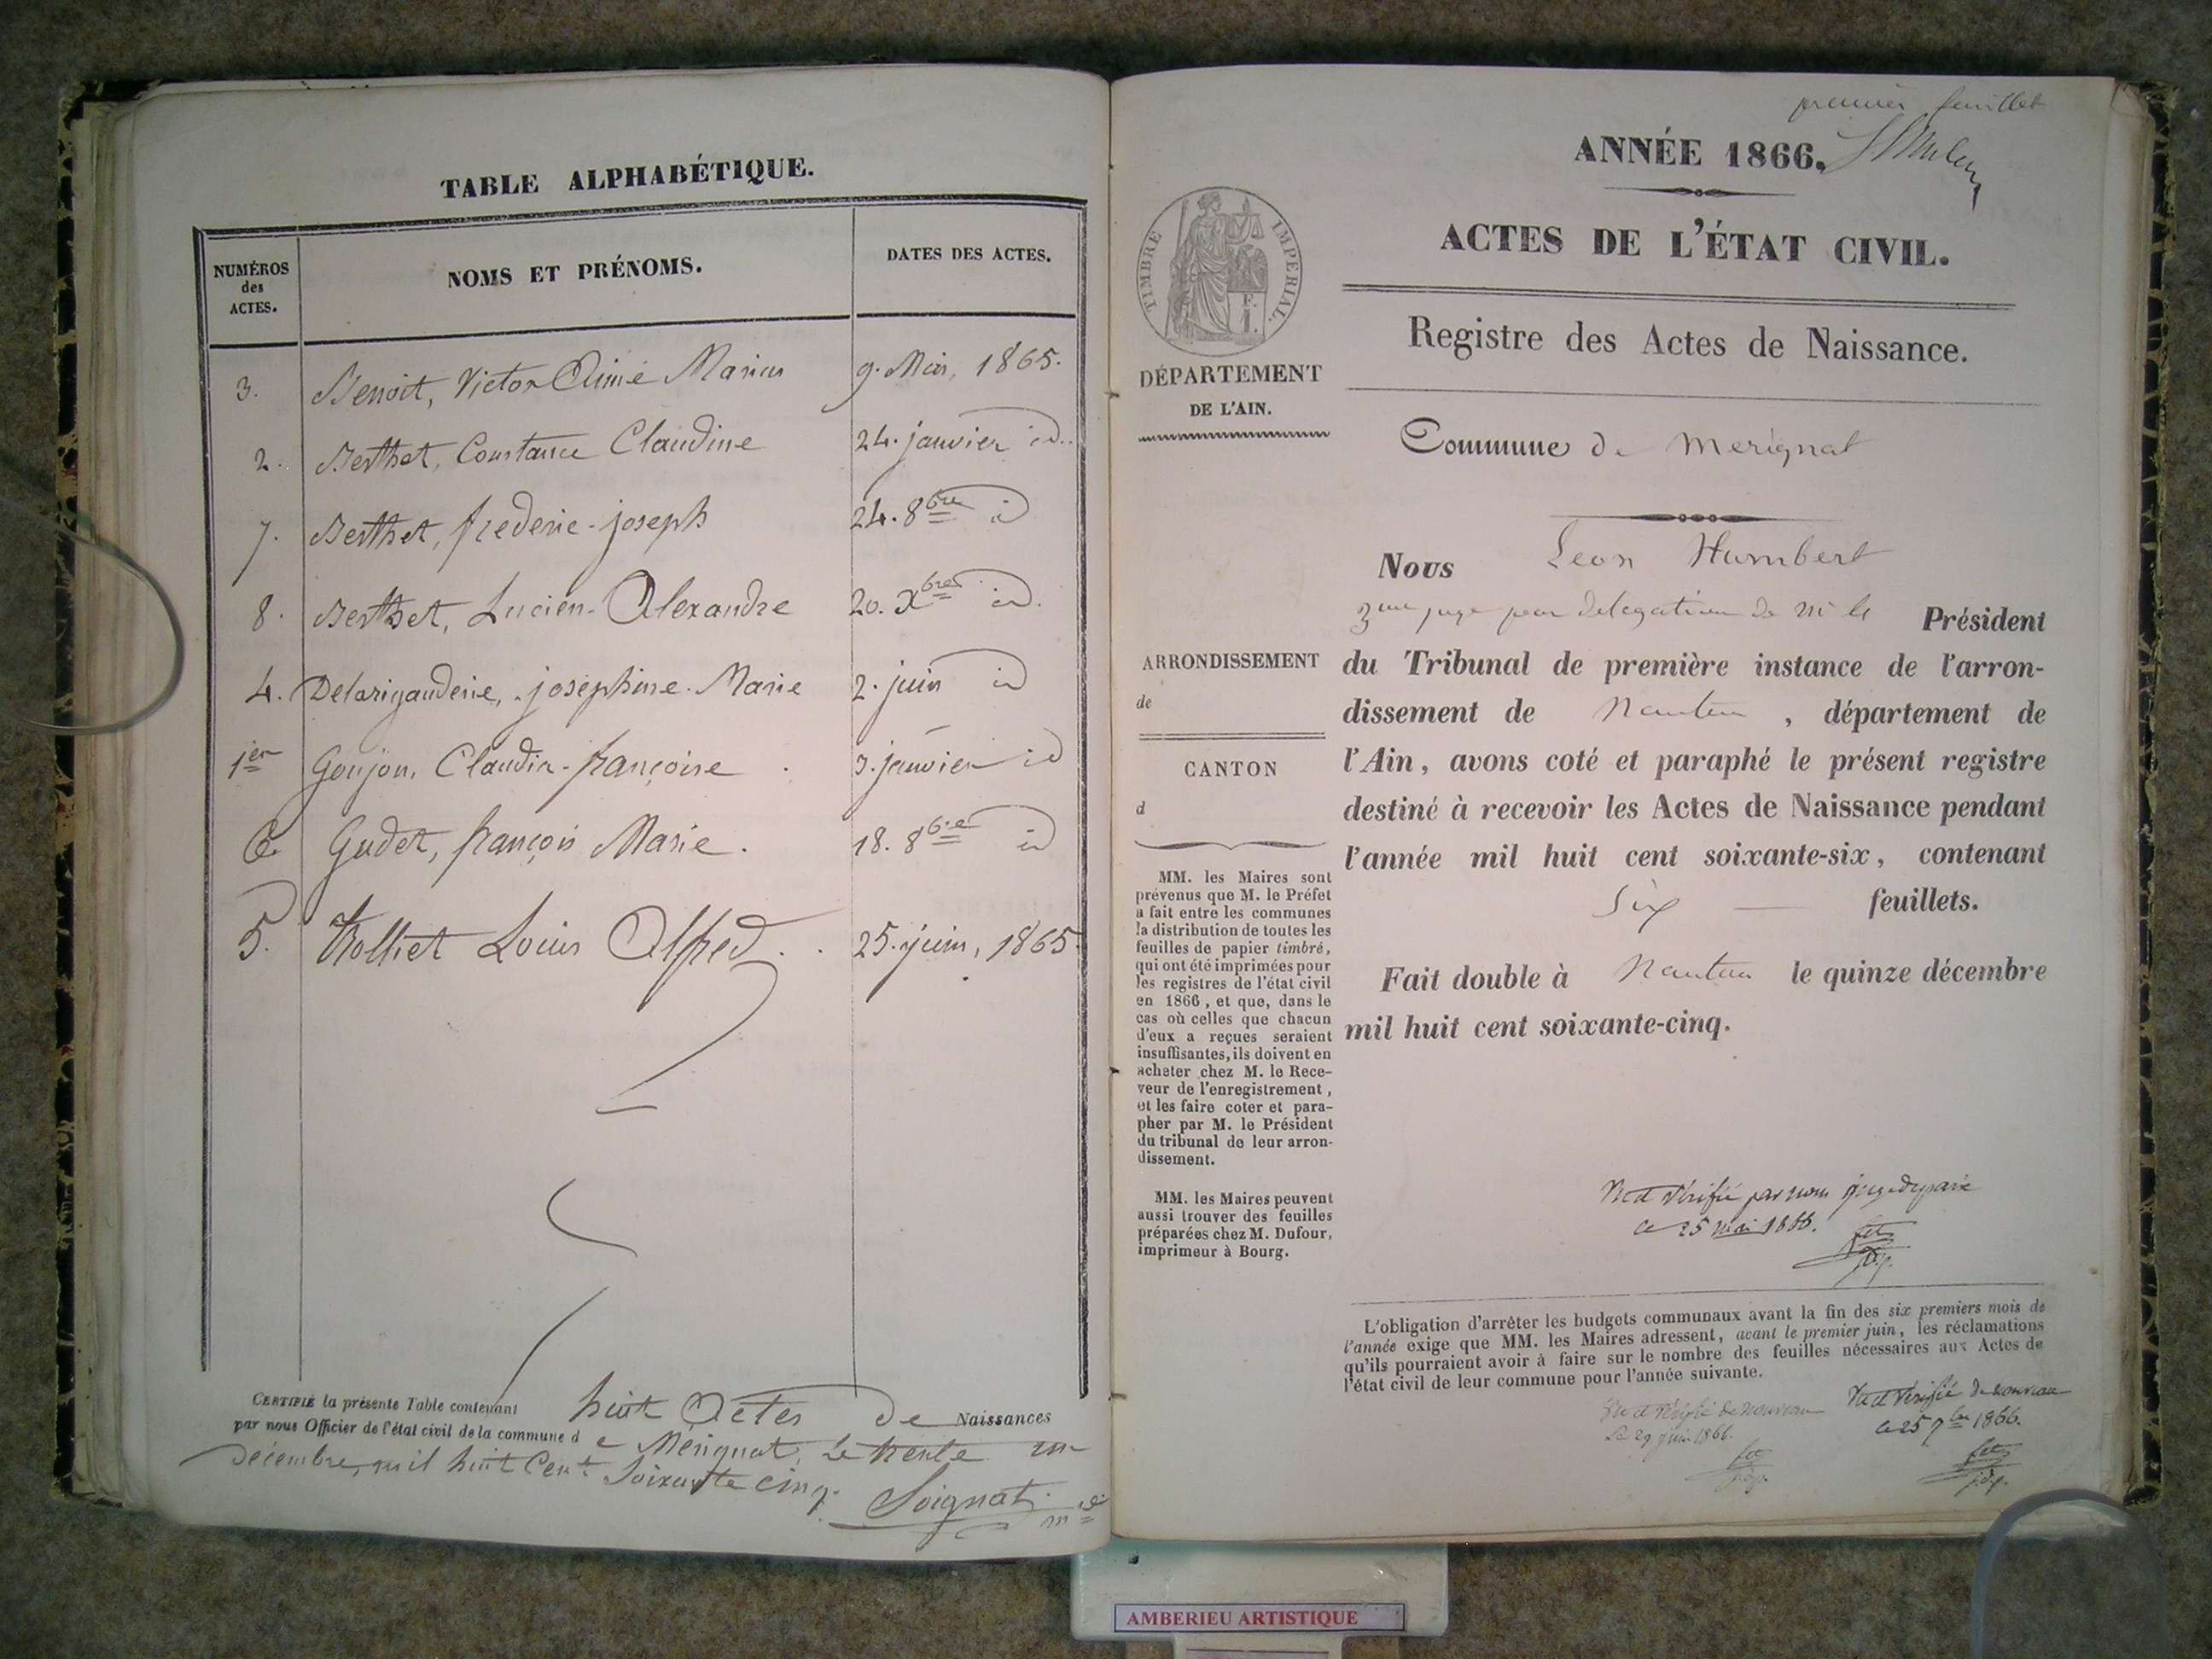 TABLE ALPHABÉTIQUE.
NUMÉROS
des
ACTES.
NOMS ET PRÉNOMS.
DATES DES ACTES.
3. Benoit, Victor Aimé Marius 9. Mai, 1865.
2. Berthet, Constance Claudine 24. janvier id.
7. Berthet, frederic-joseph 24. 8bre id
8. Berthet, Lucien-Alexandre 20. Xbre id.
4. Delarigauderie, josephine. Marie 2. juin id
1er Goujon, Claudia-françoise 3. janvier id
6 Gudet, françois Marie. 18. 8bre id
5. Louis Alfred 25. juin, 1865
CERTIFIÉ la présente Table contenant huit Actes de Naissances
par nous Officier de l'état civil de la commune de Mérignat, Le trente un
Décembre, mil huit Cent Soixante cinq.
Soignat
premier feuillet
ANNÉE 1866.
ACTES DE L'ÉTAT CIVIL.
Registre des Actes de Naissance.
Commune de Merignat
TIMBRE IMPERIAL.
F.
I.
DÉPARTEMENT
DE L'AIN.
ARRONDISSEMENT
de
CANTON
d
MM. les Maires sont
prévenus que M. le Préfet
a fait entre les communes
la distribution de toutes les
feuilles de papier timbré,
qui ont été imprimées pour
les registres de l'état civil
en 1866, et que, dans le
cas où celles que chacun
d'eux a reçues seraient
insuffisantes, ils doivent en
acheter chez M. le Rece-
veur de l'enregistrement,
et les faire coter et para-
pher par M. le Président
du tribunal de leur arron-
dissement.
MM. les Maires peuvent
aussi trouver des feuilles
préparées chez M. Dufour,
imprimeur à Bourg.
Nous Leon Humbert
juge par delegation de Mr le Président
du Tribunal de première instance de l'arron-
dissement de Nantua, département de
l'Ain, avons coté et paraphé le présent registre
destiné à recevoir les Actes de Naissance pendant
l'année mil huit cent soixante-six, contenant
Six — feuillets.
Fait double à Nantua le quinze décembre
mil huit cent soixante-cinq.
Vu et Vérifié par nous juge de paix
ce 25 mai 1866.
L'obligation d'arrêter les budgets communaux avant la fin des six premiers mois de
l'année exige que MM. les Maires adressent, avant le premier juin, les réclamations
qu'ils pourraient avoir à faire sur le nombre des feuilles nécessaires aux Actes de
l'état civil de leur commune pour l'année suivante.
Vu et Vérifié de nouveau
Le 29 juin 1866.
Vu et Vérifié de nouveau
ce 25 7bre 1866.
AMBERIEU ARTISTIQUE